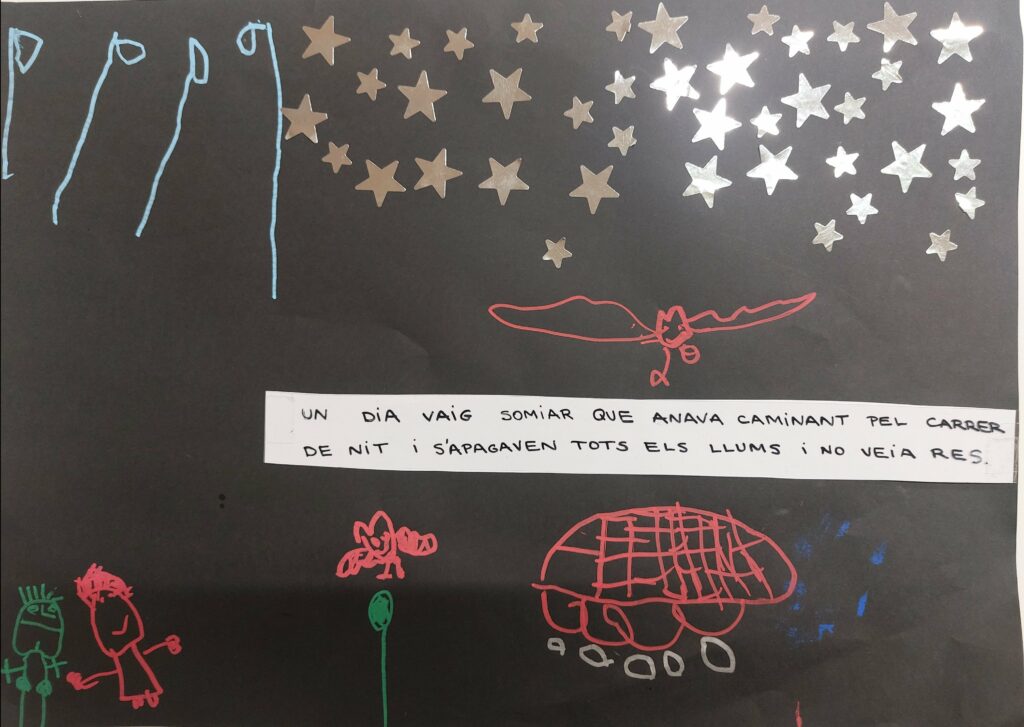 UN DIA VAIG SOMIAR QUE ANAVA CAMINANT PEL CARRER
DE NIT I S'APAGAVEN TOTS ELS LLUMS I NO VEIA RES.